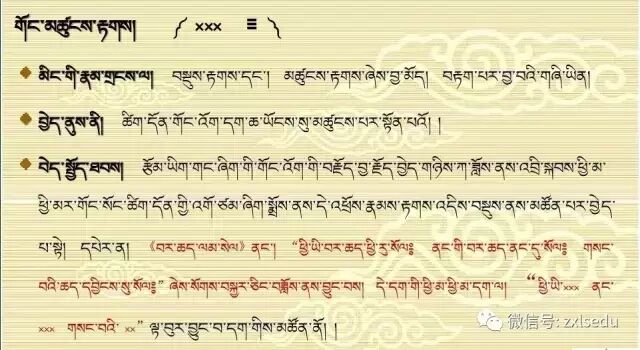 གོང་མཚུངས་རྟགས། ༼ xxx ≡ ༽
མིང་གི་རྣམ་གྲངས་ལ། བསྡུས་རྟགས་དང་། མཚུངས་རྟགས་ཞེས་བྱ་མོད། བརྟག་པར་བྱ་བའི་གཞི་ཡིན།
བྱེད་ནུས་ནི། ཚིག་དོན་གོང་འོག་དག་ཆ་ཡོངས་སུ་མཚུངས་པར་སྟོན་པའོ། །
བེད་སྤྱོད་ཐབས། རྩོམ་ཡིག་གང་ཞིག་གི་གོང་འོག་གི་བརྗོད་བྱ་རྗོད་བྱེད་གཉིས་ཀ་ཟློས་ནས་འབྲི་སྐབས་ཕྱི་མ་
ཕྱི་མར་གོང་སོང་ཚིག་དོན་གྱི་འགོ་ཙམ་ཞིག་སྨྲོས་ནས་དེ་འཕྲོས་རྣམས་རྟགས་འདིས་བསྡུས་ནས་མཚོན་པར་བྱེད་
པ་སྟེ། དཔེར་ན། 《བར་ཆད་ལམ་སེལ》 ནང་། “ཕྱི་ཡི་བར་ཆད་ཕྱི་རུ་སོལ༔ ནང་གི་བར་ཆད་ནང་དུ་སོལ༔ གསང་
བའི་ཆད་དབྱིངས་སུ་སོལ༔” ཞེས་སོགས་བསྐྱར་ཅིང་བཟློས་ནས་བྱུང་བས། དེ་དག་གི་ཕྱི་མ་ཕྱི་མ་དག་ལ། “ཕྱི་ཡི་xxx ནང་
xxx གསང་བའི་ xx” ལྟ་བུར་བྱུང་བ་དག་གིས་མཚོན་ནོ། །
微信号: zxlsedu